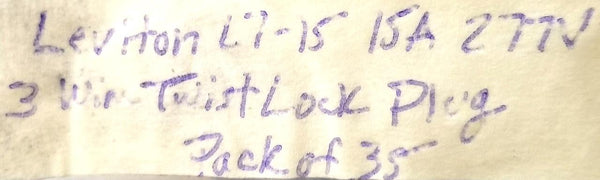 Leviton L7-15 15A 277V
3 Wire Twist Lock Plug
Pack of 35